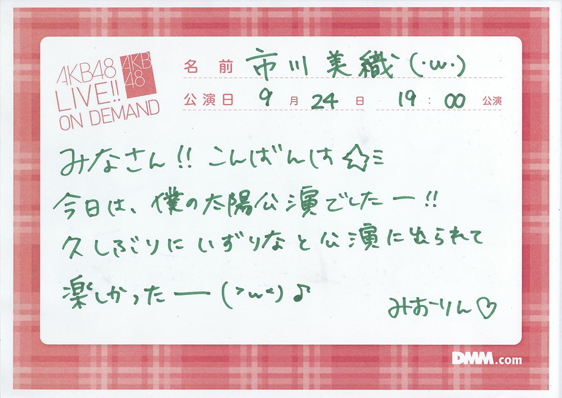 AKB48
LIVE!!
ON DEMAND
AKB
48
名前 市川美織(·ω·)
公演日 9月24日 19:00公演
みなさん!! こんばんは☆ミ
今日は、僕の太陽公演でしたー!!
久しぶりにいずりなと公演に出られて
楽しかったー(>ω<)♪
みおーりん♡
DMM.com